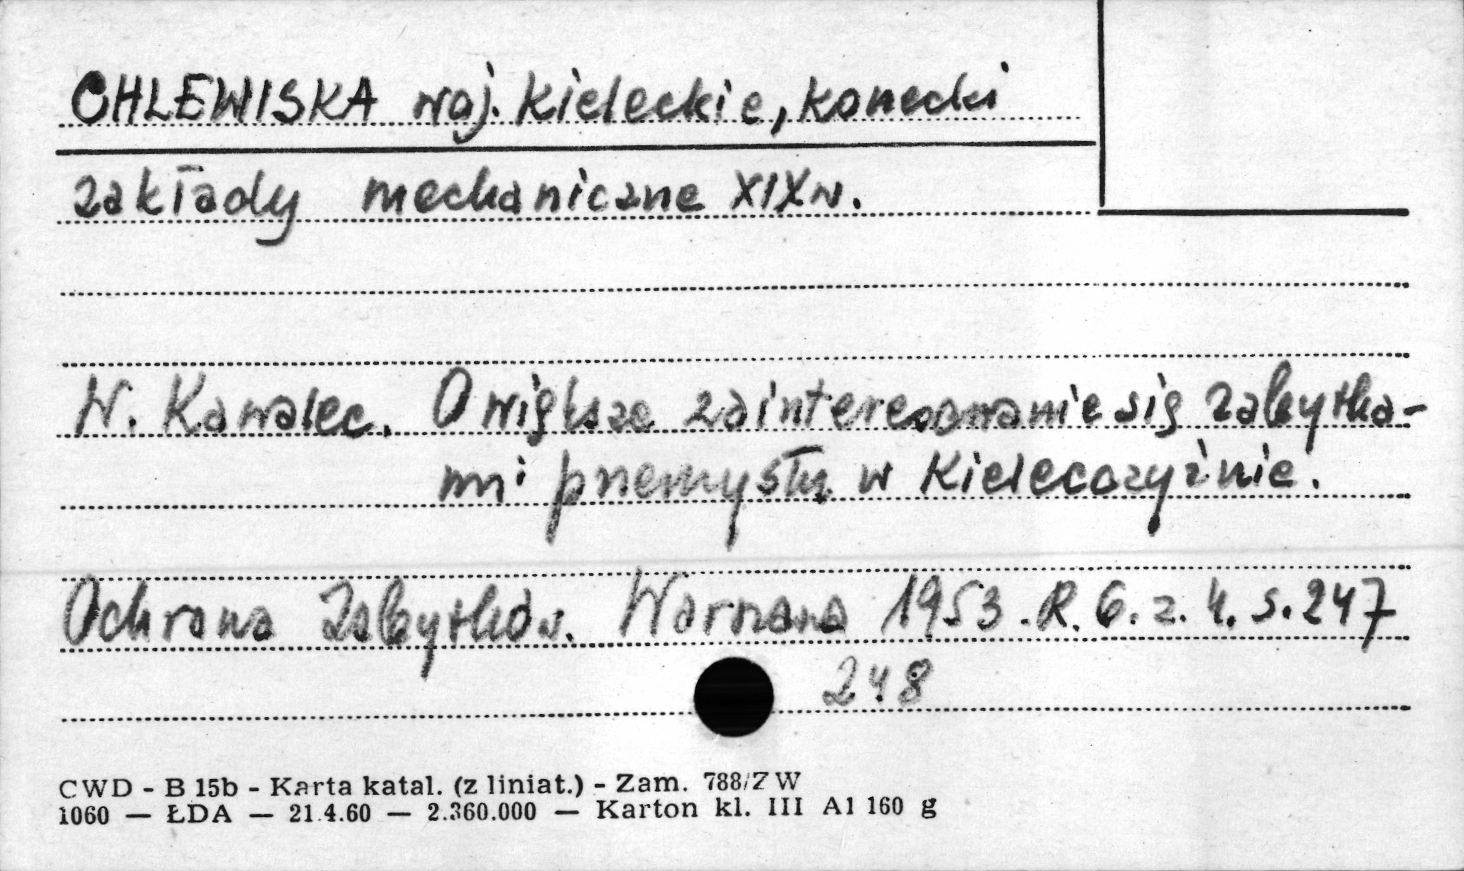 CHLEWISKA woj. kieleckie, konecki
zakłady mechaniczne XIX w.
W. Kawalec. O większe zainteresowanie się zabytka-
mi przemysłu w Kielecczyźnie.
Ochrona Zabytków. Warszawa 1953. R. 6. z. 4. s. 247
248
CWD - B 15b - Karta katal. (z liniat.) - Zam. 788/ZW
1060 — ŁDA — 21.4.60 — 2.360.000 — Karton kl. III A1 160 g